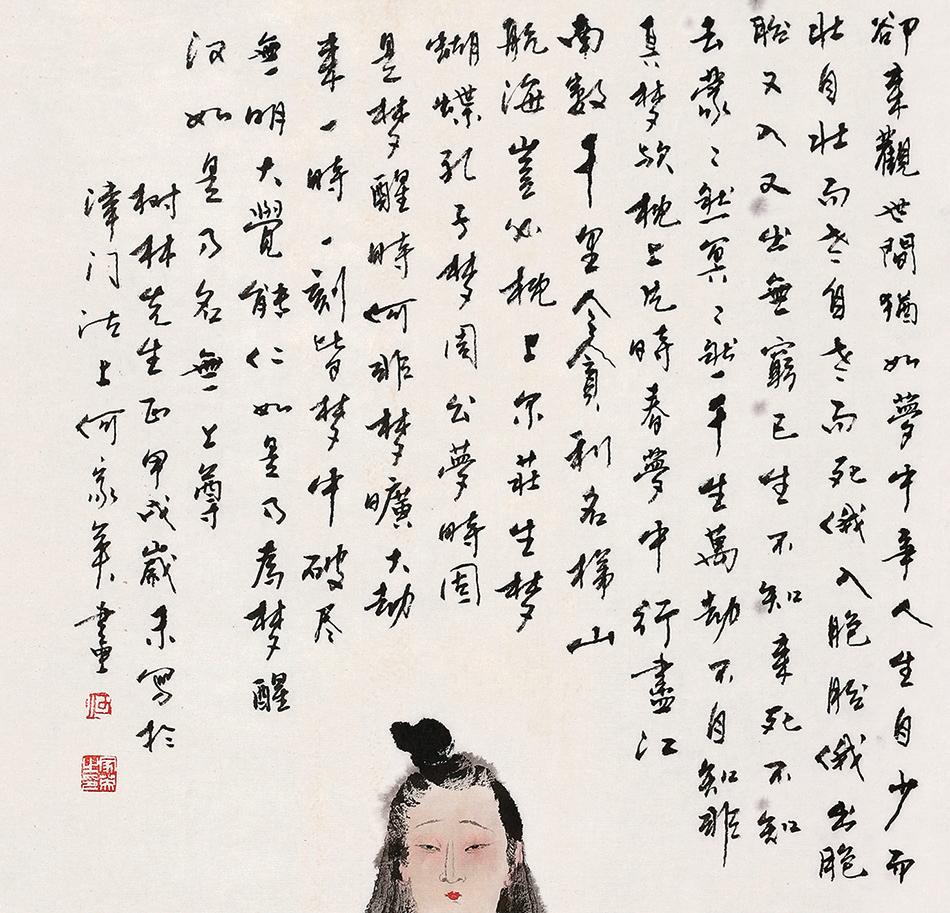 卻來觀世間猶如夢中事人生自少而
壯自壯而老自老而死俄入胞胎俄出胞
胎又入又出無窮已生不知來死不知
去蒙々然冥々然千生萬劫不自知非
真梦欤枕上片時春夢中行盡江
南數千里今貪利名梯山
航海豈必枕上尔莊生梦
蝴蝶孔子梦周公夢時固
是梦醒時何非梦曠大劫
來一時一刻皆梦中破尽
無明大覺能仁如是乃為梦醒
汉如是乃名無上尊
树林先生正甲戌歲末寫於
津门沽上何家英畫
何